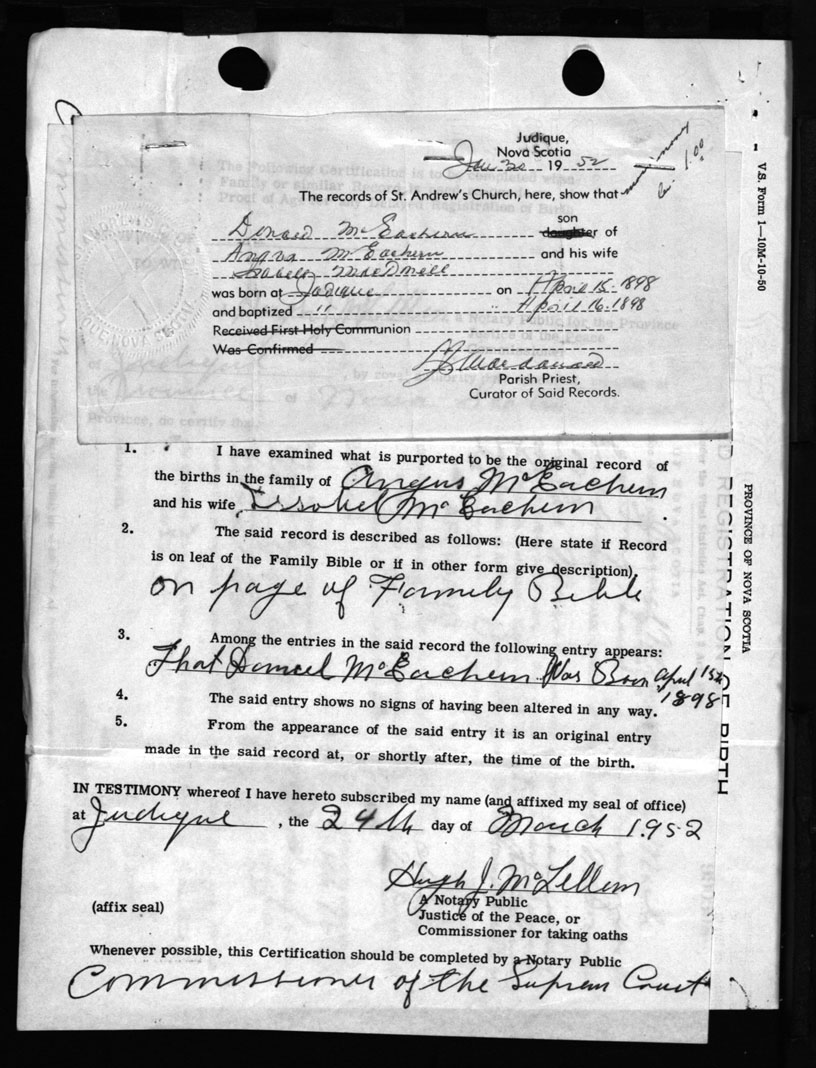 Judique,
Nova Scotia
Jan 30 1952
1.00
The records of St. Andrew's Church, here, show that
son
Donald McEachern daughter of
Angus McEachern and his wife
Isabela MacDonell
was born at Judique on April 15-1898
and baptized " " April 16-1898
Received First Holy Communion
Was Confirmed
Parish Priest,
Curator of Said Records.
1. I have examined what is purported to be the original record of
the births in the family of Angus McEachern
and his wife Issobel McEachern.
2. The said record is described as follows: (Here state if Record
is on leaf of the Family Bible or if in other form give description),
on page of Family Bible
3. Among the entries in the said record the following entry appears:
That Daniel McEachern Was Born April 15th
1898
4. The said entry shows no signs of having been altered in any way.
5. From the appearance of the said entry it is an original entry
made in the said record at, or shortly after, the time of the birth.
IN TESTIMONY whereof I have hereto subscribed my name (and affixed my seal of office)
at Judique, the 24th day of March 1952
Hugh J. McLellan
(affix seal)
A Notary Public
Justice of the Peace, or
Commissioner for taking oaths
Whenever possible, this Certification should be completed by a Notary Public
Commissioner of the Suprem Court
V.S. Form 1—10M-10-50
PROVINCE OF NOVA SCOTIA
REGISTRATION OF BIRTH